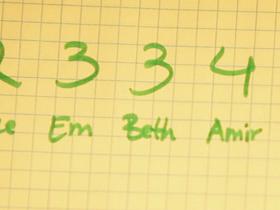 3 3 4
Em Beth Amir